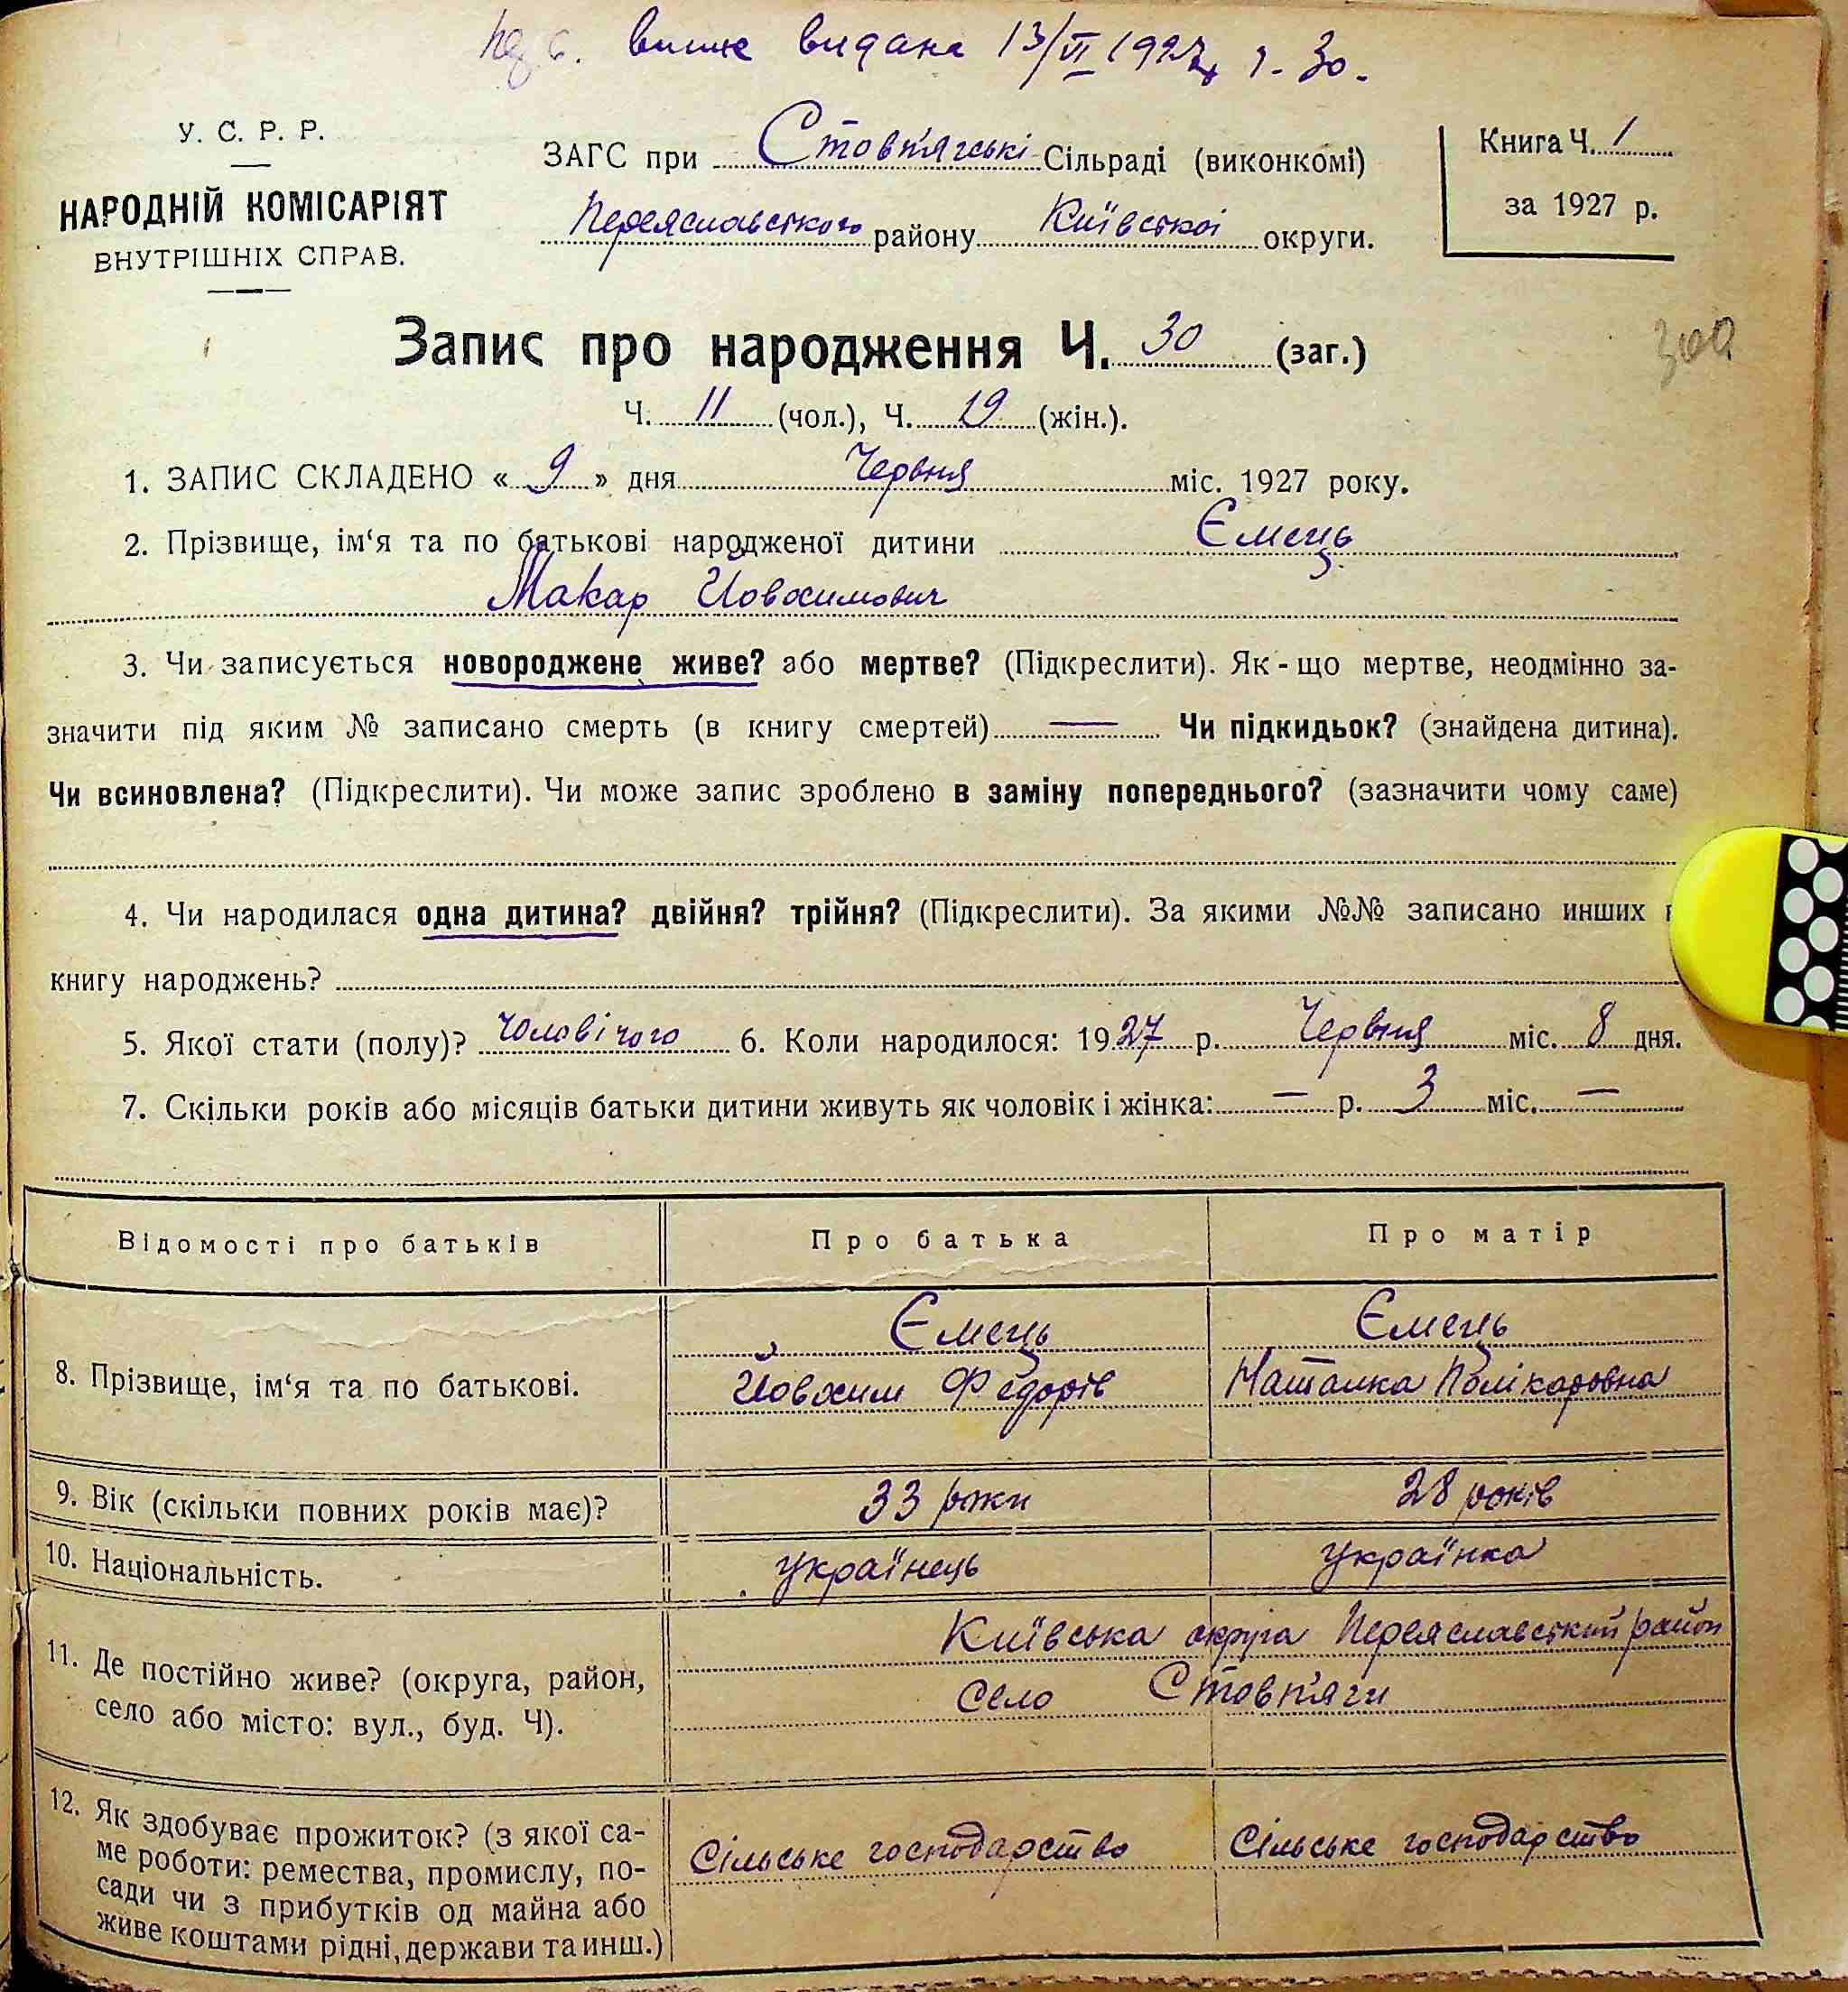 випис видана 13/VI 1927 р. 30.
У. С. Р. Р.
НАРОДНІЙ КОМІСАРІЯТ
ВНУТРІШНІХ СПРАВ.
ЗАГС при Стовп'ягські Сільраді (виконкомі)
Переяславського району Київської округи.
Книга Ч. 1
за 1927 р.
Запис про народження Ч. 30 (заг.)
300
Ч. 11 (чол.), Ч. 19 (жін.).
1. ЗАПИС СКЛАДЕНО « 9 » дня Червня міс. 1927 року.
2. Прізвище, ім‘я та по батькові народженої дитини Ємець
Макар Йовхимович
3. Чи записується новороджене живе? або мертве? (Підкреслити). Як-що мертве, неодмінно за-
значити під яким № записано смерть (в книгу смертей) — Чи підкидьок? (знайдена дитина).
Чи всиновлена? (Підкреслити). Чи може запис зроблено в заміну попереднього? (зазначити чому саме)
4. Чи народилася одна дитина? двійня? трійня? (Підкреслити). За якими №№ записано инших
книгу народжень?
5. Якої стати (полу)? Чоловічого 6. Коли народилося: 1927 р. Червня міс. 8 дня.
7. Скільки років або місяців батьки дитини живуть як чоловік і жінка: — р. 3 міс. —
Відомості про батьків Про батька Про матір
8. Прізвище, ім‘я та по батькові.
Ємець
Йовхим Федорів
Ємець
Наталка Полікаровна
9. Вік (скільки повних років має)? 33 роки 28 років
10. Національність. українець українка
11. Де постійно живе? (округа, район,
село або місто: вул., буд. Ч).
Київська округа Переяславський район
село Стовп'яги
12. Як здобуває прожиток? (з якої са-
ме роботи: ремества, промислу, по-
сади чи з прибутків од майна або
живе коштами рідні, держави та инш.)
Сільське господарство
Сільське господарство